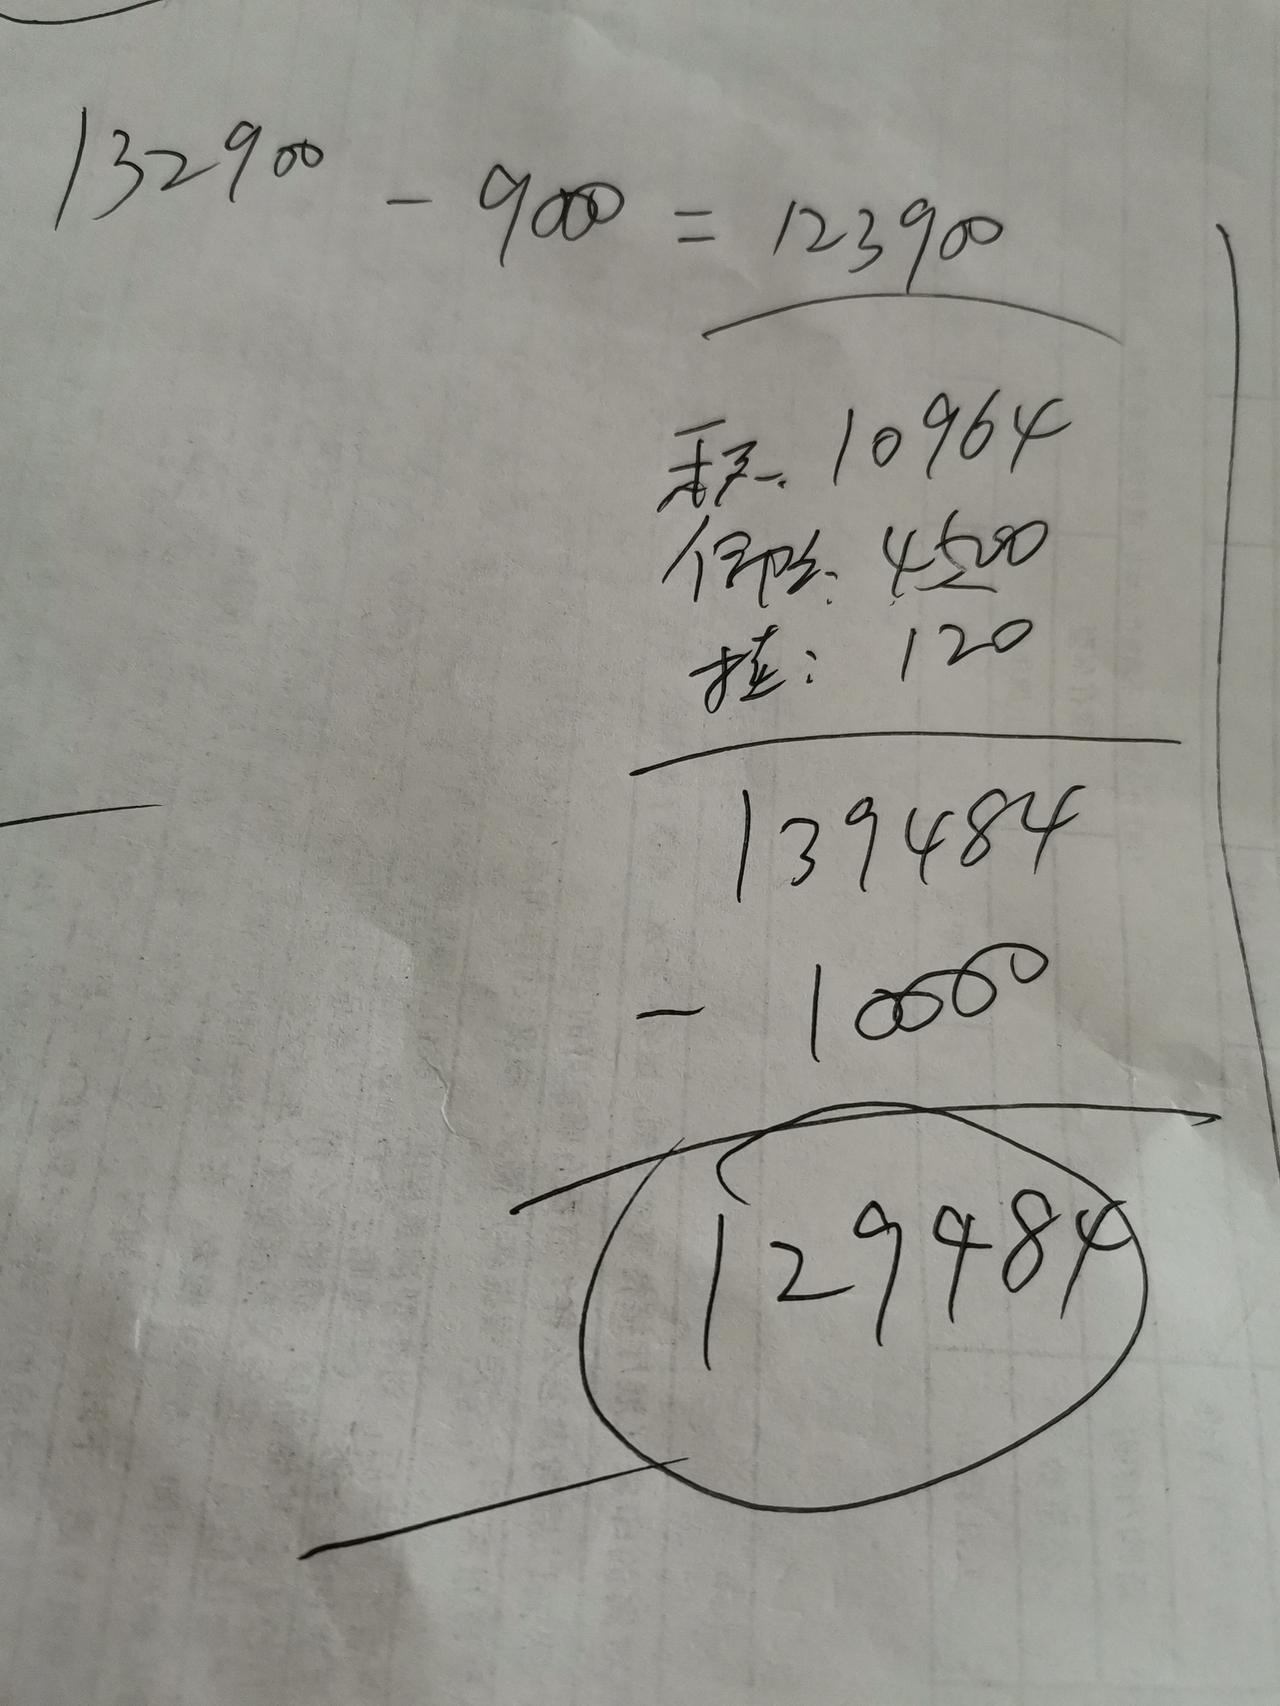 132900 - 9000 = 123900
10964
保险: 4500
挂: 120
139484
- 10000
129484